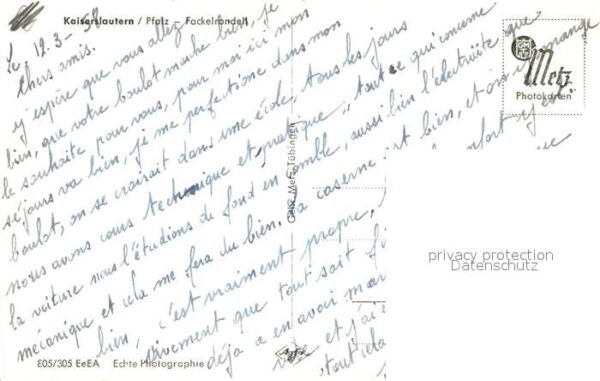 Kaiserslautern / Pfalz - Fackelrondell
Le 12.3-58
Chers amis.
j'espère que vous allez
bien, que votre boulot marche bien, je
le souhaite pour vous, pour moi ici mon
séjours va bien, je me perfectionne dans mon
boulot, on se croirait dans une école, tous les jours
nous avons cours technique et pratique, tout ce qui concerne
la voiture nous l'étudions de fond en comble, aussi bien l'électricité que
mécanique et cela me fera du bien. la caserne est bien, et on mange
bien, c'est vraiment propre, confort y est
vivement que tout soit que
déjà en avoir et j'ai
tout cela
Metz
Photokarten
Gebr. Metz, Tübingen
privacy protection
Datenschutz
805/305 EeEA Echte Photographie